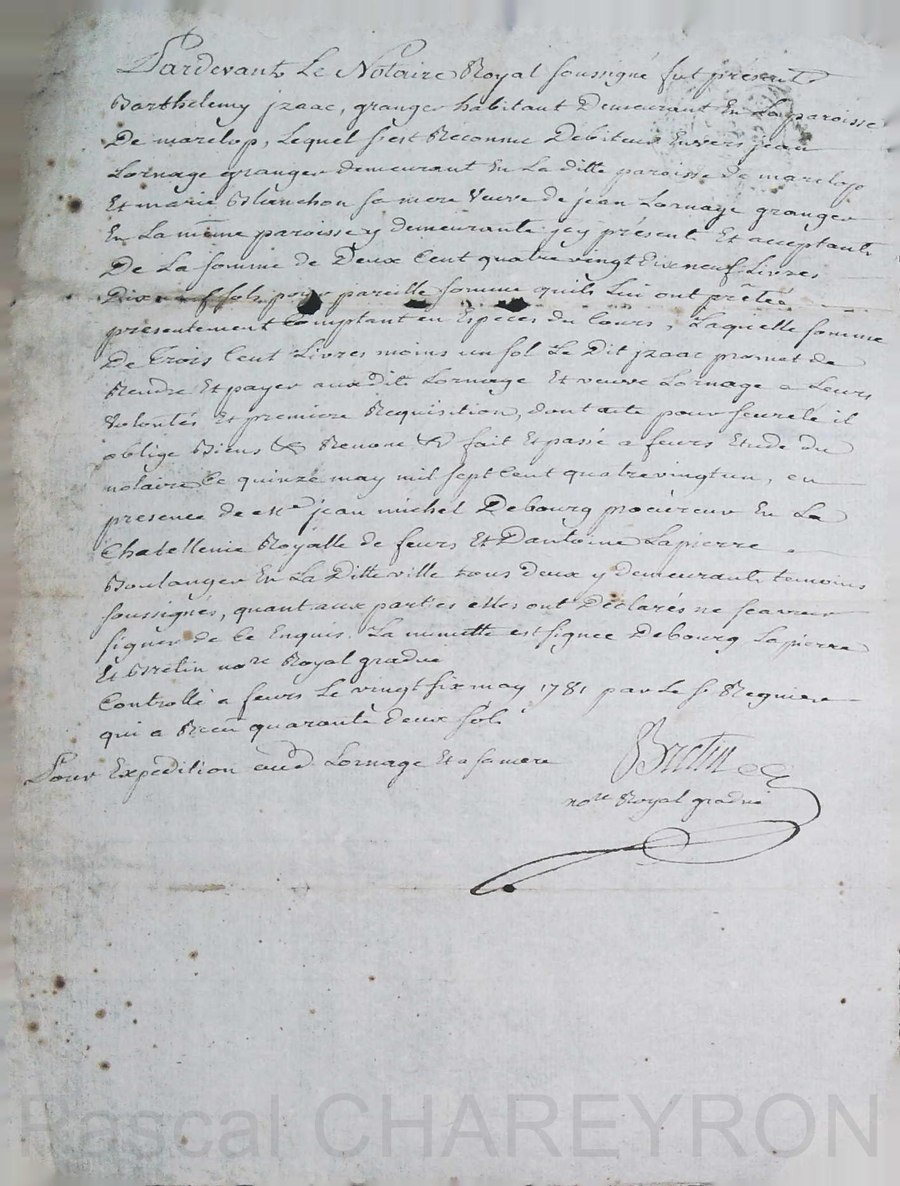 Pardevant Le Notaire Royal soussigné fut présent
Barthelemy jzaac, granger habitant Demeurant En La paroisse
De marclop, Lequel s'est Reconnu Debiteur Envers jean
Lornage granger demeurant En La ditte paroisse de marclop
Et marie Blanchon sa mere veuve de jean Lornage granger
En La même paroisse y demeurante jcy présent Et acceptant
De La somme de Deux Cent quatre vingt Dix neuf Livres
Dix neuf sols pour pareille somme qu'ils Lui ont prêtée
présentement Comptant en Espèces du Cours, Laquelle somme
De Trois Cent Livres moins un sol Le Dit jzaac promet de
Rendre Et payer auxdit Lornage Et veuve Lornage a Leurs
volontés Et premiere Requisition, dont acte pour seureté il
oblige Biens & Renone & fait Et passé a feurs Etude du
notaire Ce quinze may mil sept Cent quatrevingt un, en
presence de Me jean michel Debourg procureur En La
Chatellenie Royalle de feurs Et D'antoine Lapierre
Boulanger En La Ditte ville tous deux y demeurants temoins
soussignés, quant aux parties elles ont Déclarés ne scavoir
signer de Ce Enquis. La minutte est signée Debourg Lapierre
Et Bretin nore Royal gradué
Controllé a feurs Le vingt six may 1781 par Le Sr Regnier
qui a Recu quarante deux sols
Pour Expédition aud Lornage Et a sa mere
Bretin
nore Royal gradué
Pascal CHAREYRON